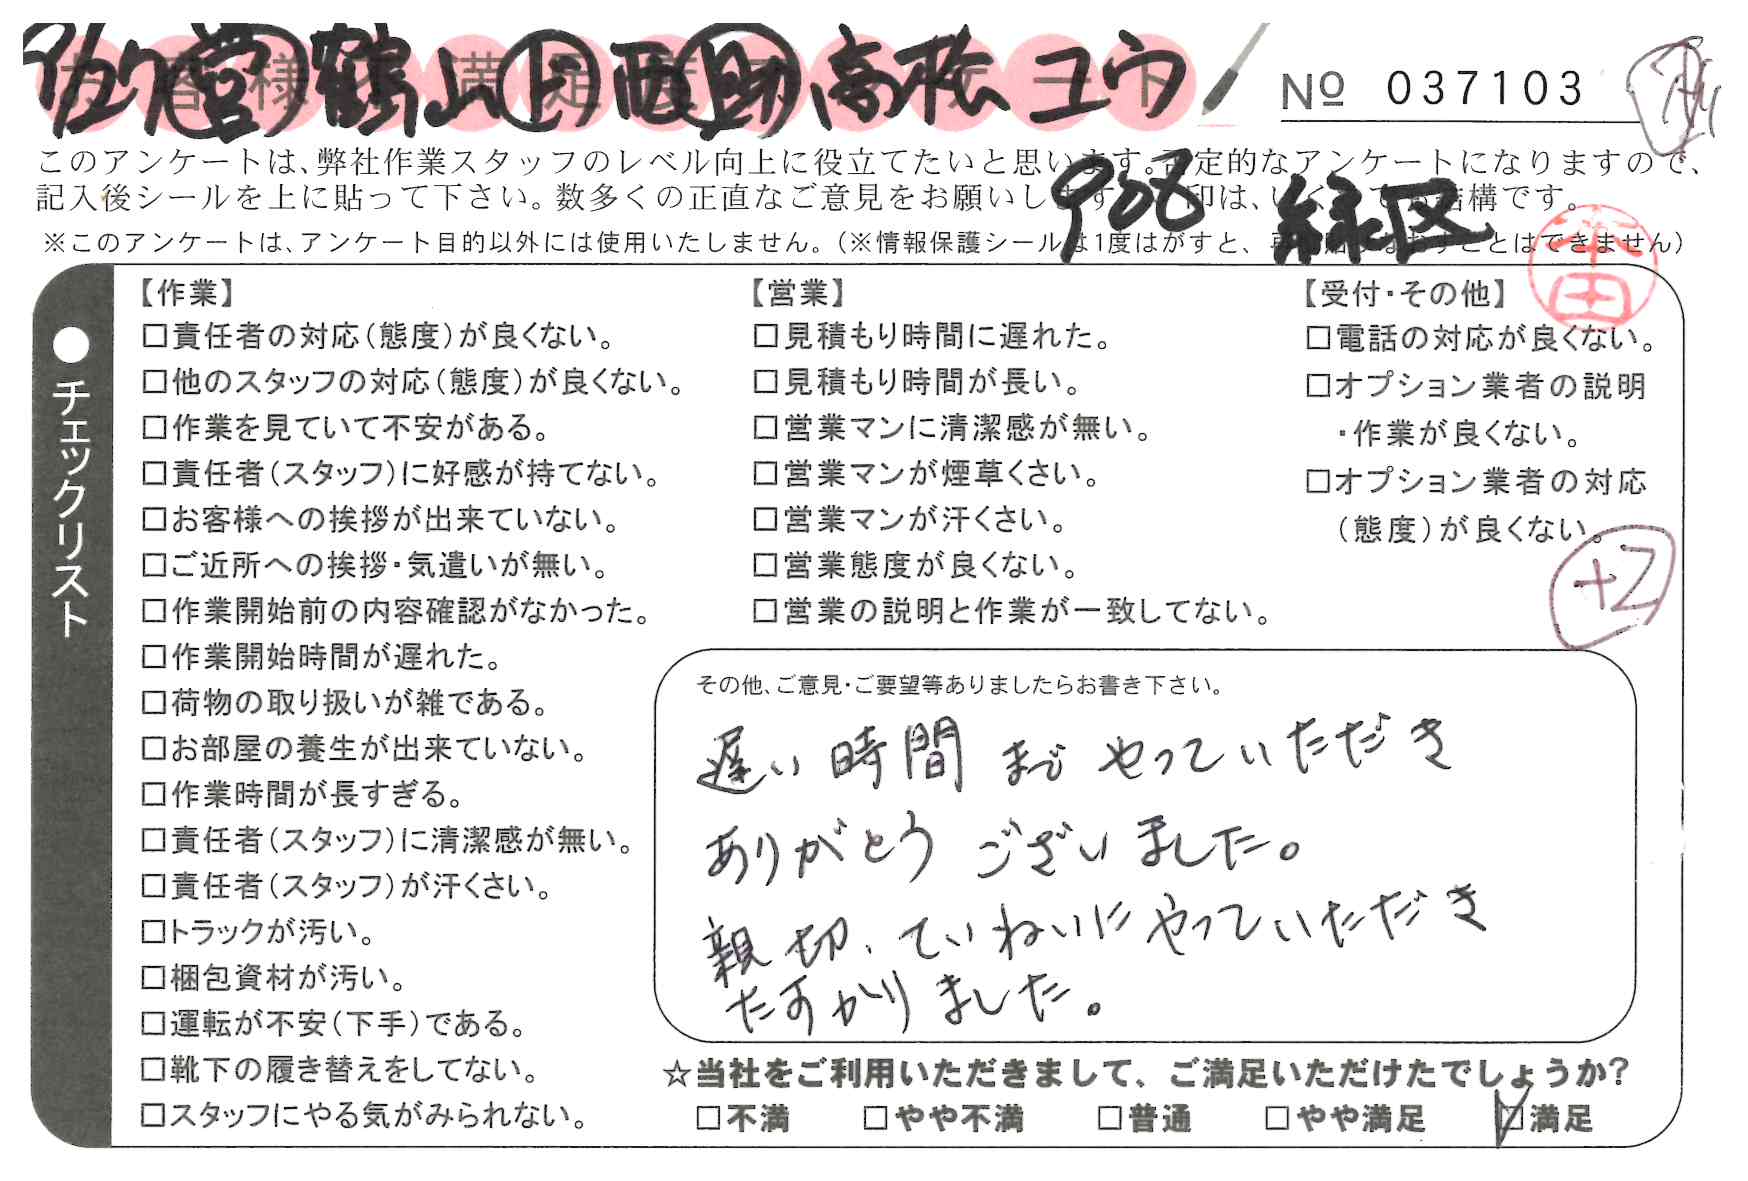 鶴山 上 西 助 高松 ユウ
№ 037103
このアンケートは、弊社作業スタッフのレベル向上に役立てたいと思います。否定的なアンケートになりますので、
908 緑区
記入後シールを上に貼って下さい。数多くの正直なご意見をお願いします
※このアンケートは、アンケート目的以外には使用いたしません。(※情報保護シールは1度はがすと、再度貼りなおすことはできません)
●チェックリスト
【作業】
□責任者の対応(態度)が良くない。
□他のスタッフの対応(態度)が良くない。
□作業を見ていて不安がある。
□責任者(スタッフ)に好感が持てない。
□お客様への挨拶が出来ていない。
□ご近所への挨拶・気遣いが無い。
□作業開始前の内容確認がなかった。
□作業開始時間が遅れた。
□荷物の取り扱いが雑である。
□お部屋の養生が出来ていない。
□作業時間が長すぎる。
□責任者(スタッフ)に清潔感が無い。
□責任者(スタッフ)が汗くさい。
□トラックが汚い。
□梱包資材が汚い。
□運転が不安(下手)である。
□靴下の履き替えをしてない。
□スタッフにやる気がみられない。
【営業】
□見積もり時間に遅れた。
□見積もり時間が長い。
□営業マンに清潔感が無い。
□営業マンが煙草くさい。
□営業マンが汗くさい。
□営業態度が良くない。
□営業の説明と作業が一致してない。
【受付・その他】
□電話の対応が良くない。
□オプション業者の説明
・作業が良くない。
□オプション業者の対応
(態度)が良くない。
+2
その他、ご意見・ご要望等ありましたらお書き下さい。
遅い時間までやっていただき
ありがとうございました。
親切、ていねいにやっていただき
たすかりました。
☆当社をご利用いただきまして、ご満足いただけたでしょうか?
□不満 □やや不満 □普通 □やや満足 ☑満足